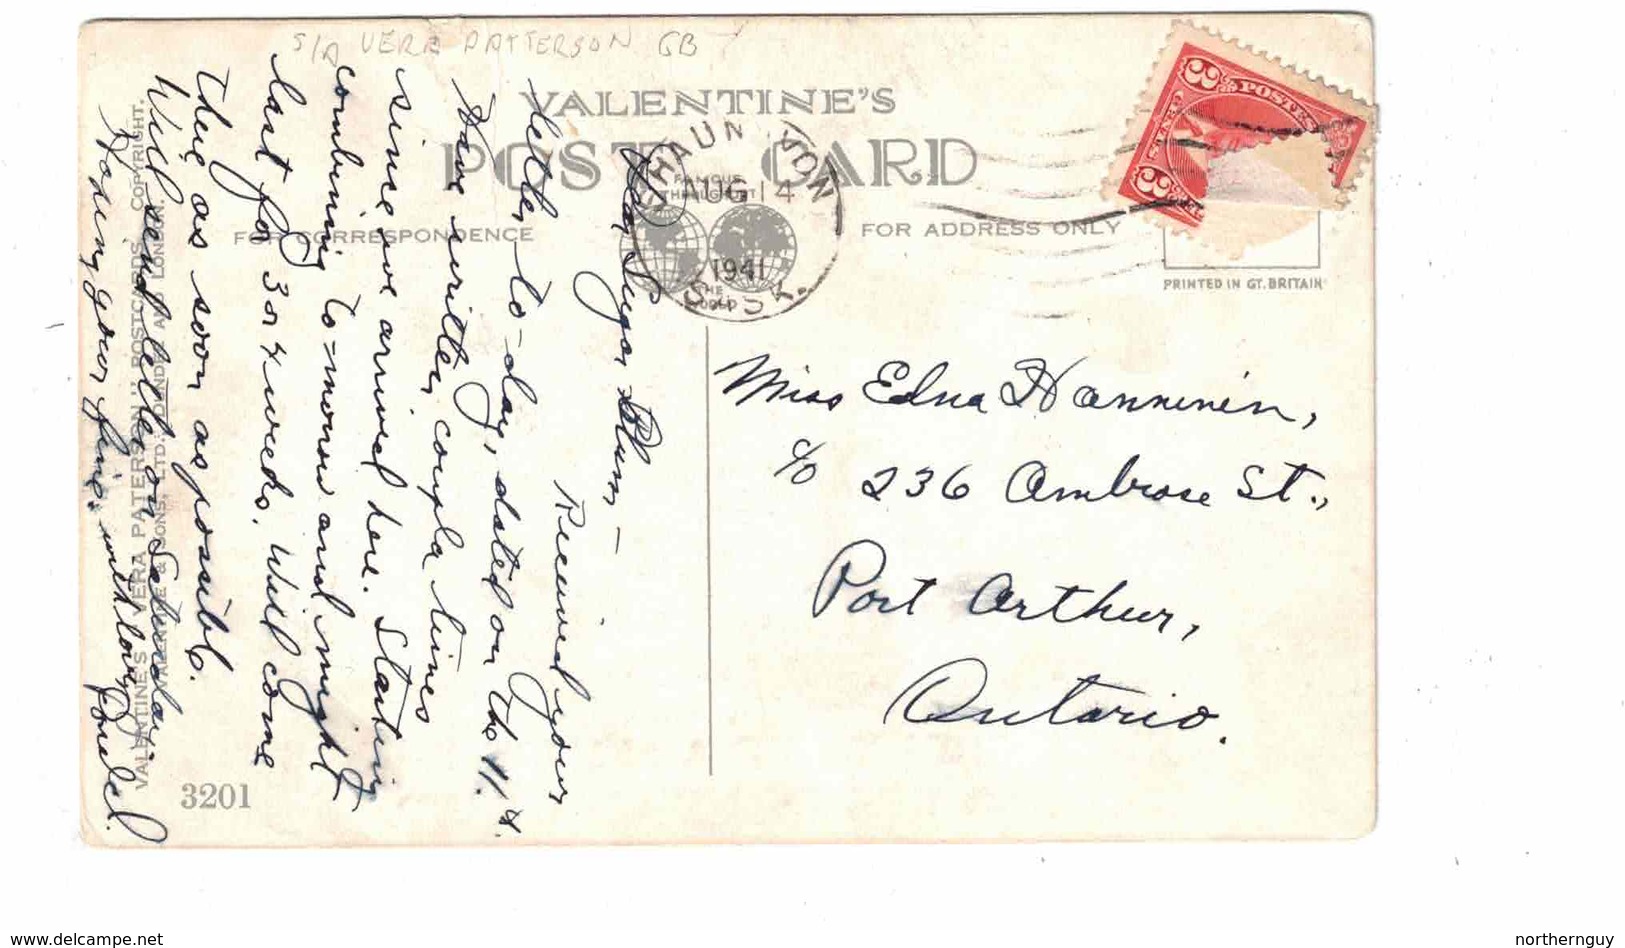 S/A VERA PATTERSON GB
VALENTINE'S
POST CARD
FAMOUS
THROUGHOUT
THE
WORLD
FOR CORRESPONDENCE
FOR ADDRESS ONLY
SHAUNAVON
AUG 14
1941
SASK.
3 POSTES 3
3
PRINTED IN GT. BRITAIN
Dear Sugar Plum,—
Received your
letter to-day, dated on the 11th.
Have written couple times
since I've arrived here. Starting
combining to-morrow and might
last for 3 or 4 weeks. Will come
there as soon as possible.
Will send letter on Saturday.
Hoping your fine. with love,
Miss Edna Hanninen,
c/o 236 Ambrose St.,
Port Arthur,
Ontario.
VALENTINE'S "VERA PATERSON" POSTCARDS. COPYRIGHT.
VALENTINE & SONS, LTD. DUNDEE AND LONDON.
3201
www.delcampe.net
northernguy